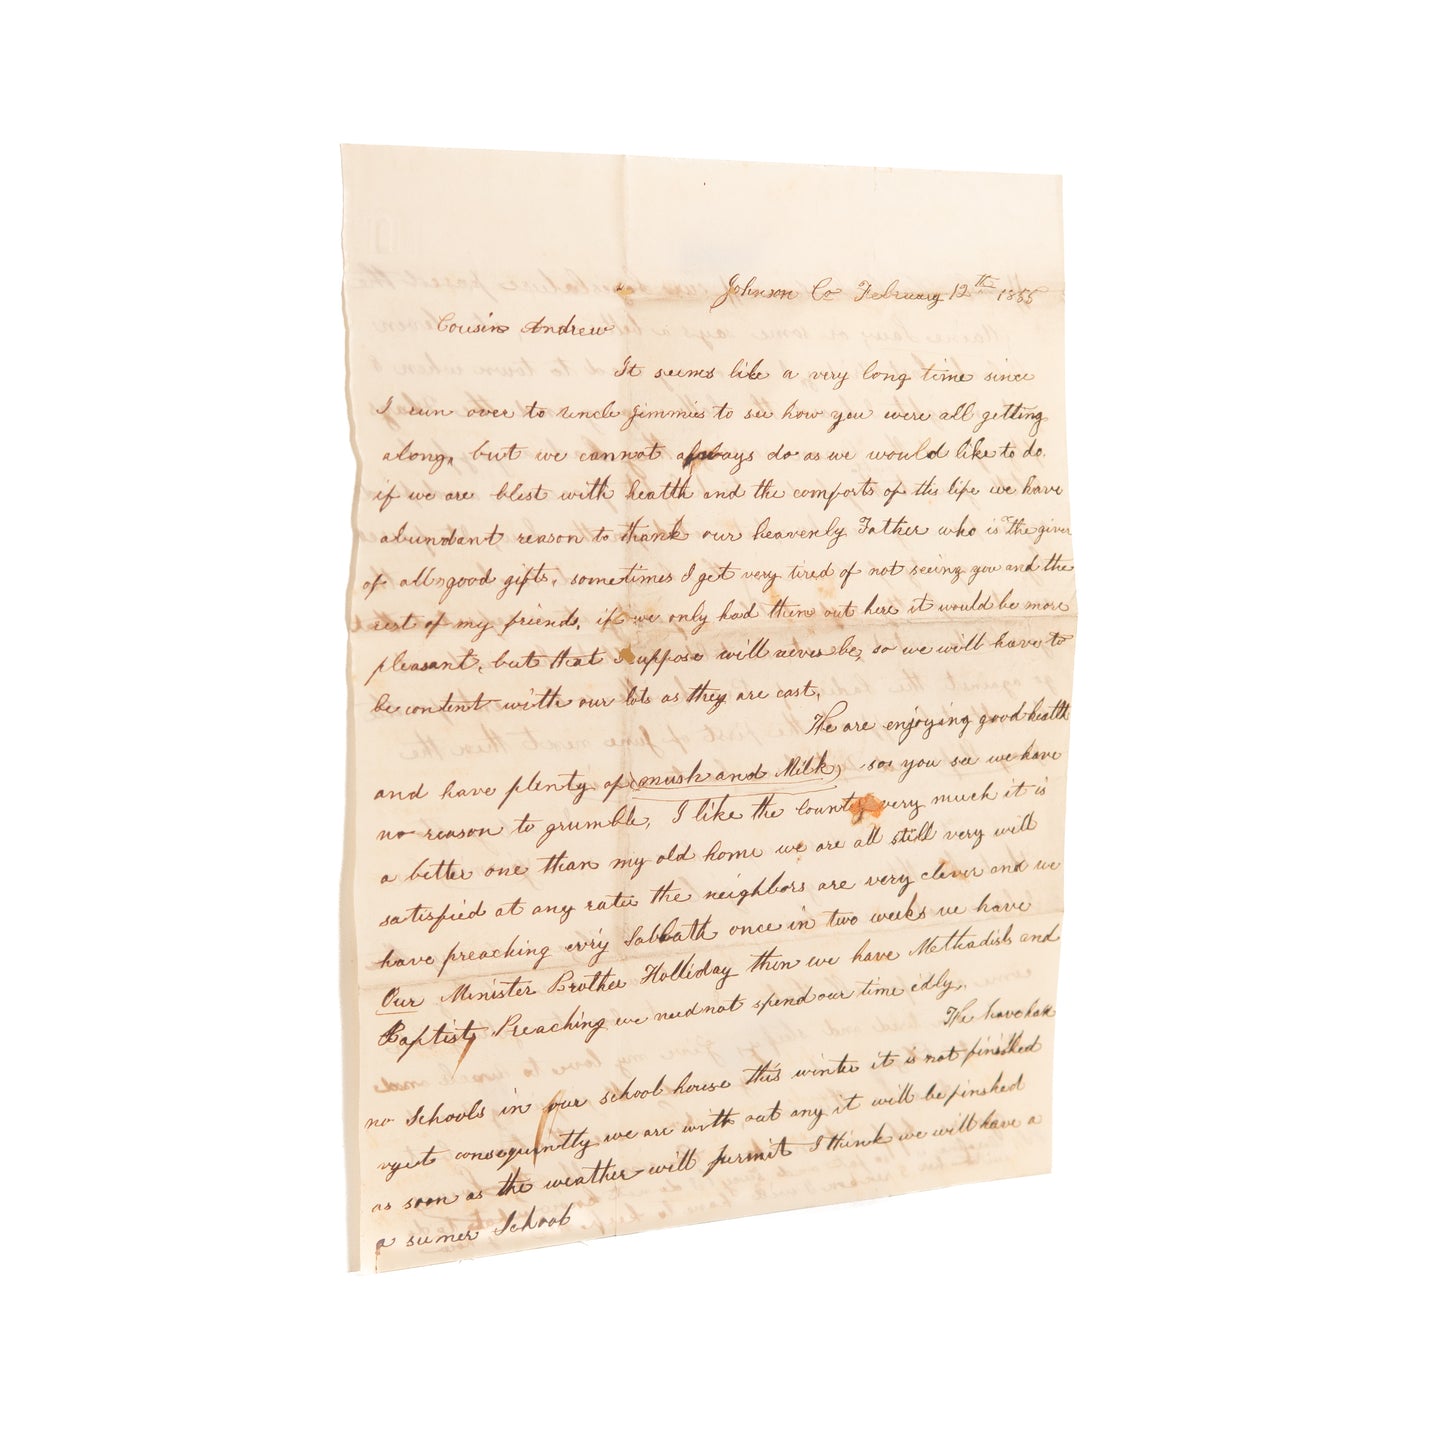 Johnson Co February 12th 1855
Cousin Andrew
It seems like a very long time since
I run over to uncle Jimmies to see how you were all getting
along, but we cannot always do as we would like to do.
if we are blest with health and the comforts of this life we have
abundant reason to thank our heavenly Father who is the giver
of all good gifts, sometimes I get very tired of not seeing you and the
rest of my friends, if we only had them out here it would be more
pleasant, but that I suppose will never be, so we will have to
be content with our lots as they are cast,
We are enjoying good health
and have plenty of (mush and Milk) so you see we have
no reason to grumble, I like the county very much it is
a better one than my old home we are all still very well
satisfied at any rate the neighbors are very clever and we
have preaching evry Sabbath once in two weeks we have
Our Minister Brother Holliday then we have Methadist and
Baptist Preaching we need not spend our time idly,
We have had
no Schools in our school house this winter it is not finished
yet consequintly we are with out any it will be finshed
as soon as the weather will permit I think we will have a
a sumer School